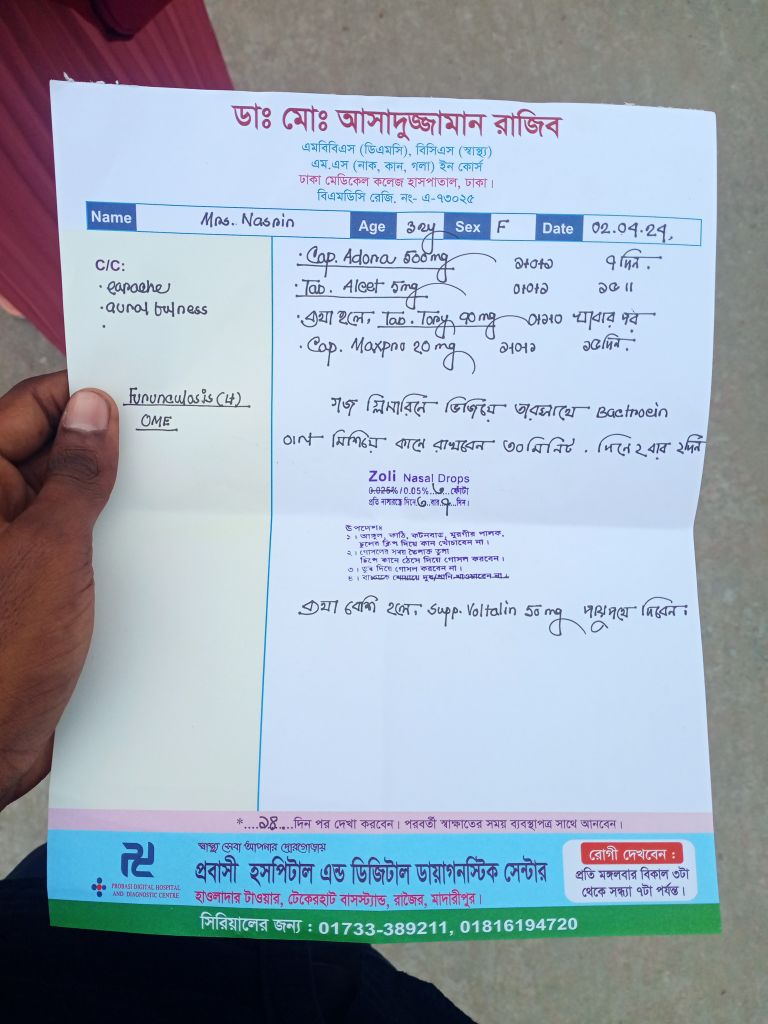 ডাঃ মোঃ আসাদুজ্জামান রাজিব
এমবিবিএস (ডিএমসি), বিসিএস (স্বাস্থ্য)
এম.এস (নাক, কান, গলা) ইন কোর্স
ঢাকা মেডিকেল কলেজ হাসপাতাল, ঢাকা।
বিএমডিসি রেজি. নং- এ-৭৩০২৫
Name Mrs. Nasrin Age 32y Sex F Date 02.04.24.
C/C:
· earache
· aural fulness
Furunculosis (4)
OME
· Cap. Adora 500mg ১+০+১ ৭ দিন.
· Tab. Alcet 5mg ০+০+১ ১৫ ॥
· ব্যথা হলে, Tab. Tory 90mg ০+১+০ খাবার পর
· Cap. Maxpro 20mg ১+০+১ ১৫ দিন.
গজ গ্লিসারিনে ভিজিয়ে তারসাথে Bactrocin
মিশিয়ে কানে রাখবেন ৩০ মিনিট. দিনে ২ বার ২ দিন
Zoli Nasal Drops
0.025% / 0.05% ফোটা
প্রতি নাসারন্ধ্রে দিনে..৩..বার..৭..দিন।
উপদেশঃ
১। আঙ্গুল, কাঠি, কটনবাড, মুরগীর পালক,
চুলের ক্লিপ দিয়ে কান খোচাবেন না।
২। গোসলের সময় তৈলাক্ত তুলা
টিপে কানে ঠেসে দিয়ে গোসল করবেন।
৩। ডুব দিয়ে গোসল করবেন না।
ব্যথা বেশি হলে, Supp. Voltalin 50 mg পায়ুপথে দিবেন।
*....১৪....দিন পর দেখা করবেন। পরবর্তী স্বাক্ষাতের সময় ব্যবস্থাপত্র সাথে আনবেন।
PROBASI DIGITAL HOSPITAL
AND DIAGNOSTIC CENTRE
স্বাস্থ্য সেবা আপনার দোরগোড়ায়
প্রবাসী হসপিটাল এন্ড ডিজিটাল ডায়াগনস্টিক সেন্টার
হাওলাদার টাওয়ার, টেকেরহাট বাসস্ট্যান্ড, রাজৈর, মাদারীপুর।
রোগী দেখবেন :
প্রতি মঙ্গলবার বিকাল ৩টা
থেকে সন্ধ্যা ৭টা পর্যন্ত।
সিরিয়ালের জন্য : 01733-389211, 01816194720